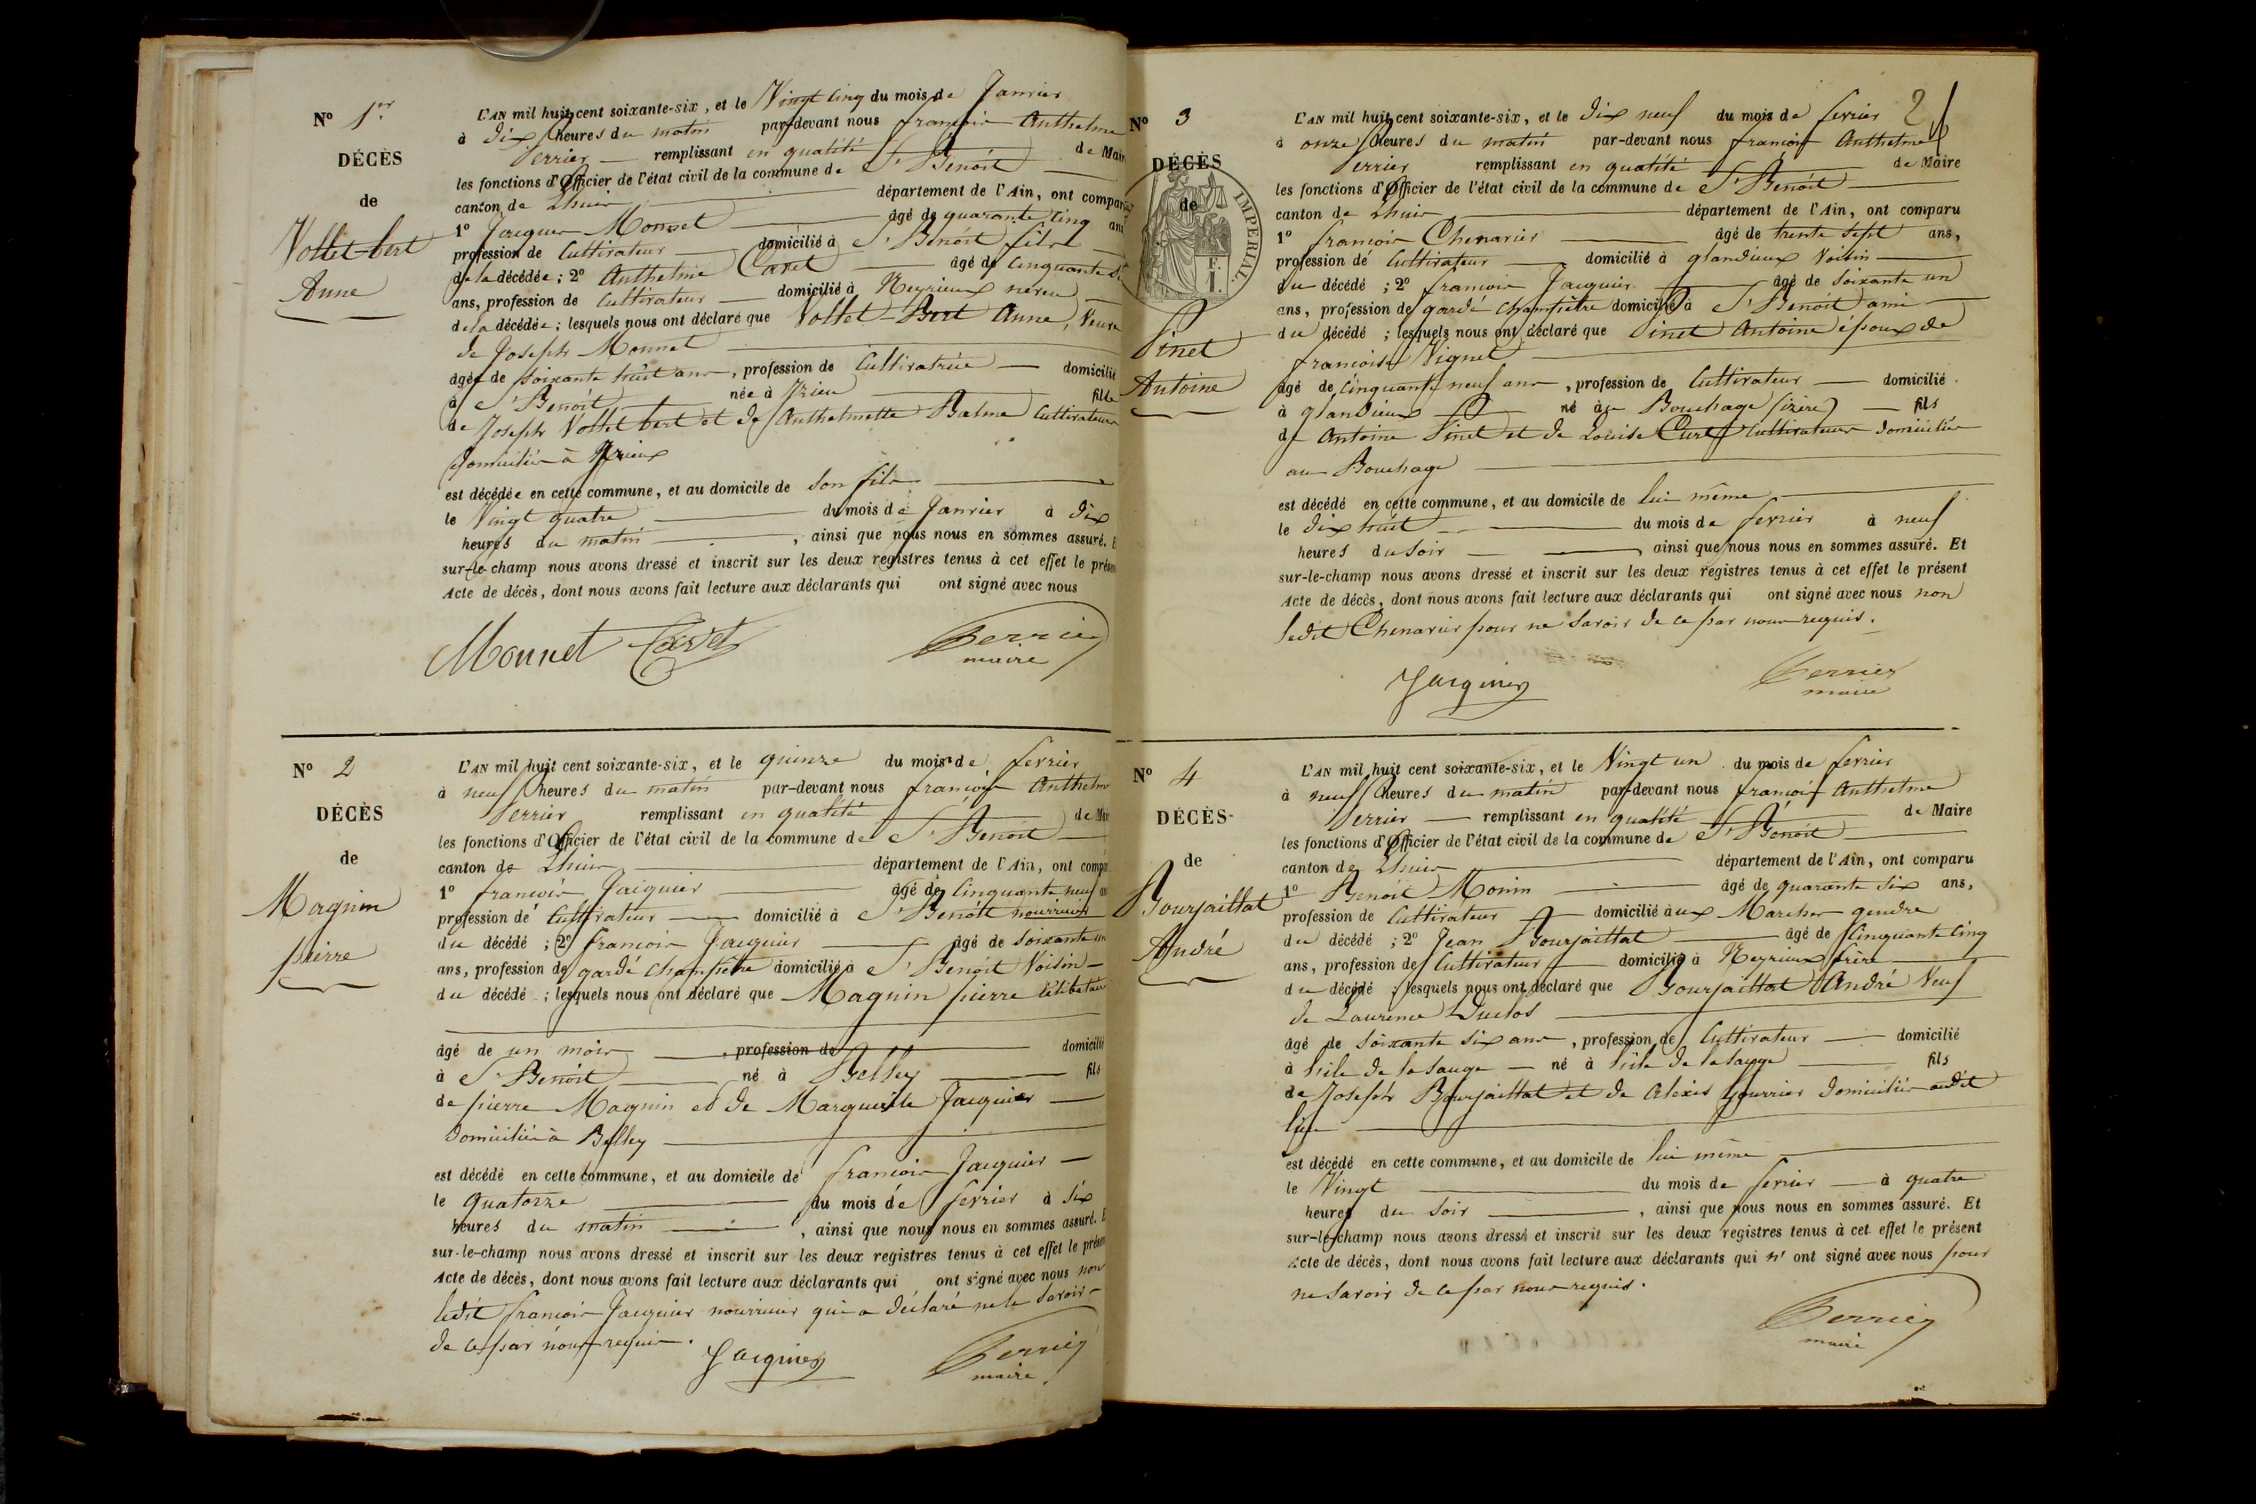 No 1er
DÉCÈS
de
Vollet-bert
Anne
L'AN mil huit cent soixante-six, et le Vingt cinq du mois de Janvier
à dix heures du matin par-devant nous françois Anthelme
Perrier remplissant en qualité de Maire
les fonctions d'Officier de l'état civil de la commune de St Benoit
canton de Lhuis département de l'Ain, ont comparu
1º Jacques Monnet âgé de quarante cinq ans
profession de Cultivateur domicilié à St Benoit fils
de la décédée ; 2º Anthelme Cavet âgé de cinquante
ans, profession de Cultivateur domicilié à Neyrieux neveu
de la décédée ; lesquels nous ont déclaré que Vollet-Bert Anne, Veuve
de Joseph Monnet
âgée de soixante huit ans, profession de Cultivatrice domicilié
à St Benoit née à Brieu fille
de Joseph Vollet bert et de Anthelmette Balme Cultivateurs
domiciliés à
est décédée en cette commune, et au domicile de son fils
le Vingt quatre du mois de Janvier à dix
heures du matin, ainsi que nous nous en sommes assuré. E
sur-le-champ nous avons dressé et inscrit sur les deux registres tenus à cet effet le présen
Acte de décès, dont nous avons fait lecture aux déclarants qui ont signé avec nous
Monnet Cavet Perrier
maire
No 2
DÉCÈS
de
Magnin
pierre
L'AN mil huit cent soixante-six, et le quinze du mois de fevrier
à neuf heures du matin par-devant nous françois Anthelme
Perrier remplissant en qualité de Mai
les fonctions d'Officier de l'état civil de la commune de St Benoit
canton de Lhuis département de l'Ain, ont compar
1º françois Jacquier âgé de cinquante neuf ans
profession de Cultivateur domicilié à St Benoit nourricier
du décédé ; 2º françois Jacquier âgé de soixante un
ans, profession de garde champêtre domicilié à St Benoit Voisin
du décédé ; lesquels nous ont déclaré que Magnin pierre Célibataire
âgé de un mois, profession de domicilié
à St Benoit né à Belley fils
de pierre Magnin et de Marguerite Jacquier
domiciliés à Belley
est décédé en cette commune, et au domicile de françois Jacquier
le quatorze du mois de fevrier à six
heures du matin, ainsi que nous nous en sommes assuré. E
sur-le-champ nous avons dressé et inscrit sur les deux registres tenus à cet effet le présen
Acte de décès, dont nous avons fait lecture aux déclarants qui ont signé avec nous non
ledit françois Jacquier nourricier qui a déclaré ne le savoir
de ce par nous requis.
Jacquier Perrier
maire
2
No 3
DÉCÈS
de
IMPERIAL
F.
1.
Pinet
Antoine
L'AN mil huit cent soixante-six, et le dix neuf du mois de fevrier
à onze heures du matin par-devant nous françois Anthelme
Perrier remplissant en qualité de Maire
les fonctions d'Officier de l'état civil de la commune de St Benoit
canton de Lhuis département de l'Ain, ont comparu
1º françois Chenavier âgé de trente sept ans,
profession de Cultivateur domicilié à glandieux Voisin
du décédé ; 2º françois Jacquier âgé de soixante un
ans, profession de garde champêtre domicilié à St Benoit ami
du décédé ; lesquels nous ont déclaré que Pinet Antoine époux de
françoise Vignet
âgé de cinquante neuf ans, profession de Cultivateur domicilié
à glandieux né au Bouchage (isère) fils
de Antoine Pinet et de Louise Curt Cultivateurs domiciliés
au Bouchage
est décédé en cette commune, et au domicile de lui même
le dix huit du mois de fevrier à neuf
heures du soir, ainsi que nous nous en sommes assuré. Et
sur-le-champ nous avons dressé et inscrit sur les deux registres tenus à cet effet le présent
Acte de décès, dont nous avons fait lecture aux déclarants qui ont signé avec nous non
ledit Chenavier pour ne savoir de ce par nous requis.
Jacquier Perrier
maire
No 4
DÉCÈS
de
Bourjaillat
André
L'AN mil huit cent soixante-six, et le Vingt un du mois de fevrier
à neuf heures du matin par-devant nous françois Anthelme
Perrier remplissant en qualité de Maire
les fonctions d'Officier de l'état civil de la commune de St Benoit
canton de Lhuis département de l'Ain, ont comparu
1º Benoit Monin âgé de quarante six ans,
profession de Cultivateur domicilié aux Marches gendre
du décédé ; 2º Jean Bourjaillat âgé de cinquante cinq
ans, profession de Cultivateur domicilié à Neyrieux frère
du décédé ; lesquels nous ont déclaré que Bourjaillat André Veuf
de Laurence Duclos
âgé de soixante six ans, profession de Cultivateur domicilié
à l'ile de la Sauge né à l'ile de la sauge fils
de Joseph Bourjaillat et de Alexis domiciliés audit
lieu
est décédé en cette commune, et au domicile de lui même
le Vingt du mois de fevrier à quatre
heures du soir, ainsi que nous nous en sommes assuré. Et
sur-le-champ nous avons dressé et inscrit sur les deux registres tenus à cet effet le présent
Acte de décès, dont nous avons fait lecture aux déclarants qui n'ont signé avec nous pour
ne savoir de ce par nous requis.
Perrier
maire